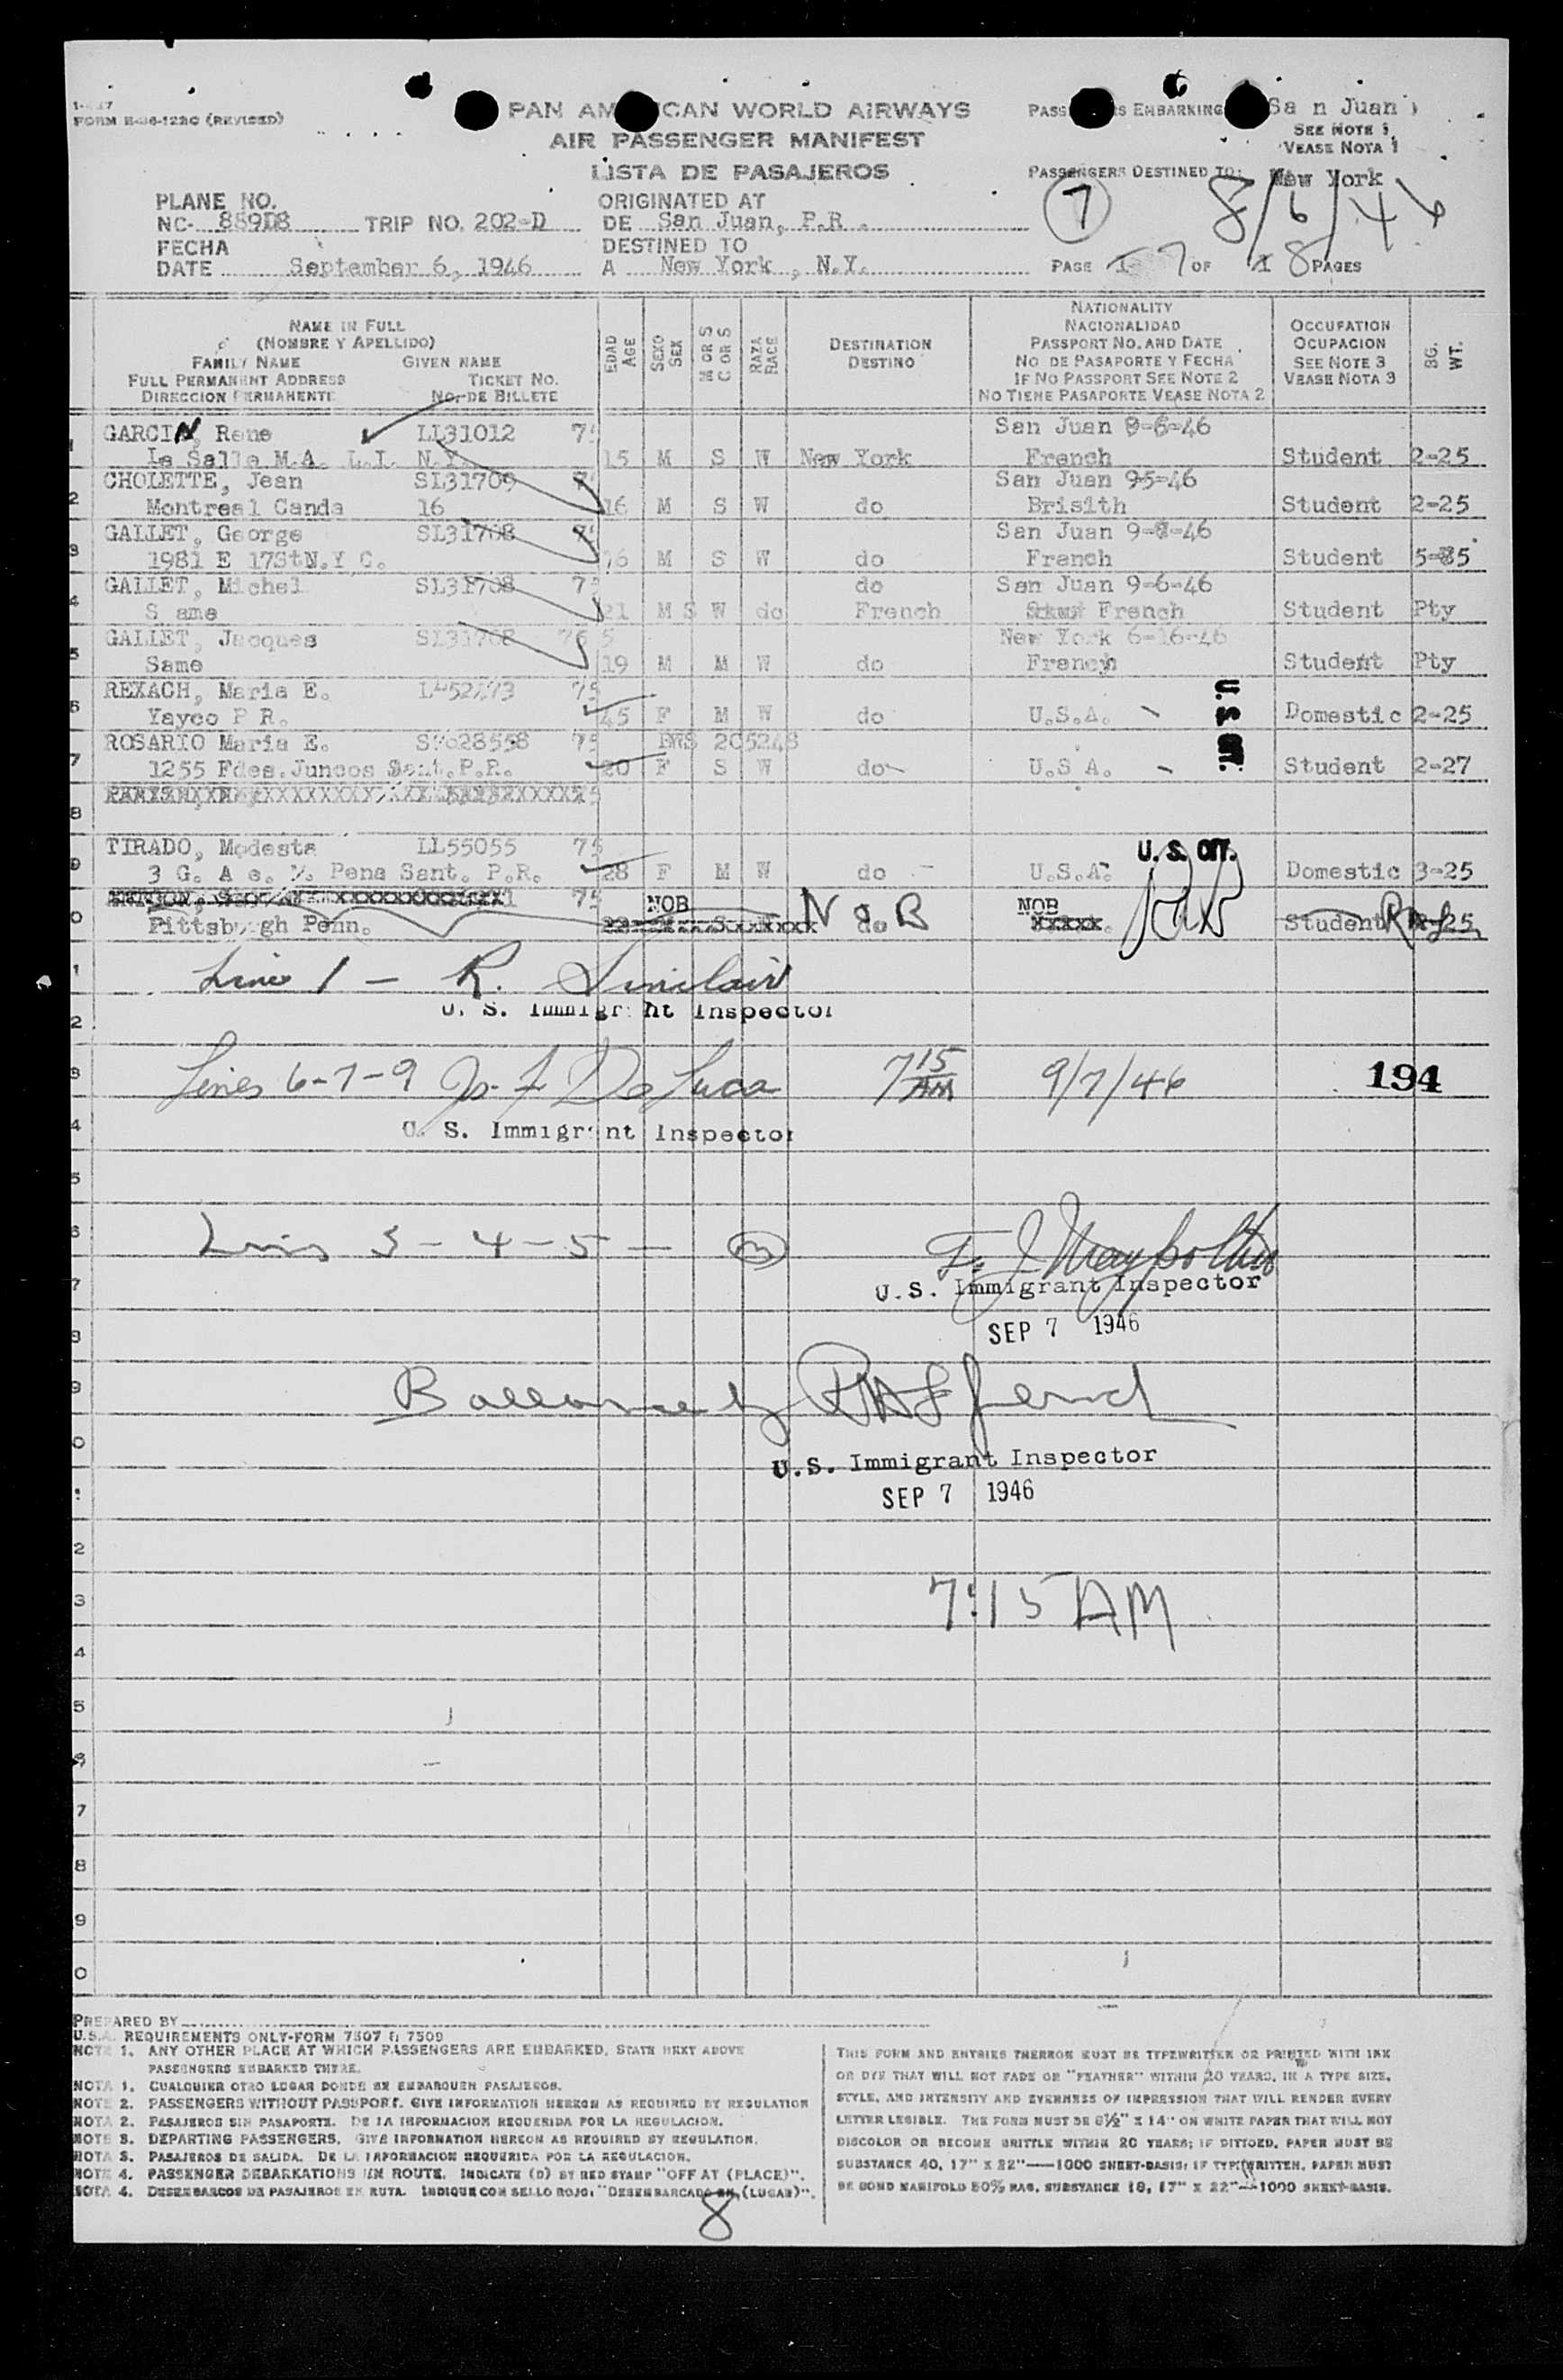 FORM (REVISED)
PAN AM ICAN WORLD AIRWAYS
AIR PASSENGER MANIFEST
LISTA DE PASAJEROS
PASS RS EMBARKING Sa n Juan
SEE NOTE 1
VEASE NOTA 1
PASSENGERS DESTINED TO: New York
7 8/6/46
PLANE NO.
NC- TRIP NO. 202-D
ORIGINATED AT
DE San Juan, P.R.
FECHA
DATE September 6, 1946
DESTINED TO
A New York, N.Y.
PAGE 7 OF 8 PAGES
NAME IN FULL
(NOMBRE Y APELLIDO)
FAMILY NAME GIVEN NAME
FULL PERMANENT ADDRESS TICKET NO.
DIRECCION PERMANENTE NO. DE BILLETE
EDAD AGE
SEXO SEX
M OR S C OR S
RAZA RACE
DESTINATION
DESTINO
NATIONALITY
NACIONALIDAD
PASSPORT NO. AND DATE
NO. DE PASAPORTE Y FECHA
IF NO PASSPORT SEE NOTE 2
NO TIENE PASAPORTE VEASE NOTA 2
OCCUPATION
OCUPACION
SEE NOTE 3
VEASE NOTA 3
BG. WT.
GARCIN, Rene LL31012 75 San Juan 9-6-46
La Salle M.A. L.I. N.Y. 15 M S W New York French Student 2-25
CHOLETTE, Jean SL31709 San Juan 9-5-46
Montreal Canda 16 16 M S W do Brisith Student 2-25
GALLET, George SL31708 75 San Juan 9- -46
1981 E 17St N.Y C. 16 M S W do French Student
GALLET, Michel SL31708 75 do San Juan 9-6-46
S ame 21 M S W do French French Student Pty
GALLET, Jacques SL31708 New York 6-16-46
Same 19 M M W do French Student Pty
REXACH, Maria E. 75
P R. 45 F M W do U.S.A. Domestic 2-25
ROSARIO Maria E. 75
1255 Fdes. Juncos Sant. P.R. 20 F S W do U.S A. Student 2-27
TIRADO, Modesta LL55055 75 U.S. CIT.
Pena Sant. P.R. 28 F M W do U.S.A. Domestic 3-25
75 NOB N O B NOB
Pittsburgh Penn. do Student
Line 1 - R. Sinclair
U. S. Immigrant Inspector
Lines 6-7-9 De Luca 7 15 AM 9/7/46 194
U. S. Immigrant Inspector
Lines 3-4-5-
U.S. Immigrant Inspector
SEP 7 1946
U.S. Immigrant Inspector
SEP 7 1946
7:15 AM
PREPARED BY
U.S.A. REQUIREMENTS ONLY-FORM 7507 & 7509
NOTE 1. ANY OTHER PLACE AT WHICH PASSENGERS ARE EMBARKED, STATE NEXT ABOVE
PASSENGERS EMBARKED THERE.
NOTA 1. CUALQUIER OTRO LUGAR DONDE SE EMBARQUEN PASAJEROS.
NOTE 2. PASSENGERS WITHOUT PASSPORT. GIVE INFORMATION HEREON AS REQUIRED BY REGULATION
NOTA 2. PASAJEROS SIN PASAPORTE. DE LA INFORMACION REQUERIDA POR LA REGULACION.
NOTE 3. DEPARTING PASSENGERS. GIVE INFORMATION HEREON AS REQUIRED BY REGULATION.
NOTA 3. PASAJEROS DE SALIDA. DE LA INFORMACION REQUERIDA POR LA REGULACION.
NOTE 4. PASSENGER DEBARKATIONS EN ROUTE. INDICATE (D) BY RED STAMP "OFF AT (PLACE)".
NOTA 4. DESEMBARCOS DE PASAJEROS EN RUTA. INDIQUE CON SELLO ROJO: "DESEMBARCADO EN (LUGAR)".
THIS FORM AND ENTRIES THEREON MUST BE TYPEWRITTEN OR PRINTED WITH INK
OR DYE THAT WILL NOT FADE OR "FEATHER" WITHIN 20 YEARS, IN A TYPE SIZE,
STYLE, AND INTENSITY AND EVENNESS OF IMPRESSION THAT WILL RENDER EVERY
LETTER LEGIBLE. THE FORM MUST BE 8½" X 14" ON WHITE PAPER THAT WILL NOT
DISCOLOR OR BECOME BRITTLE WITHIN 20 YEARS; IF DITTOED, PAPER MUST BE
SUBSTANCE 40, 17" X 22"—1000 SHEET-BASIS; IF TYPEWRITTEN, PAPER MUST
BE BOND MANIFOLD 50% RAG, SUBSTANCE 18, 17" X 22"—1000 SHEET-BASIS.
8